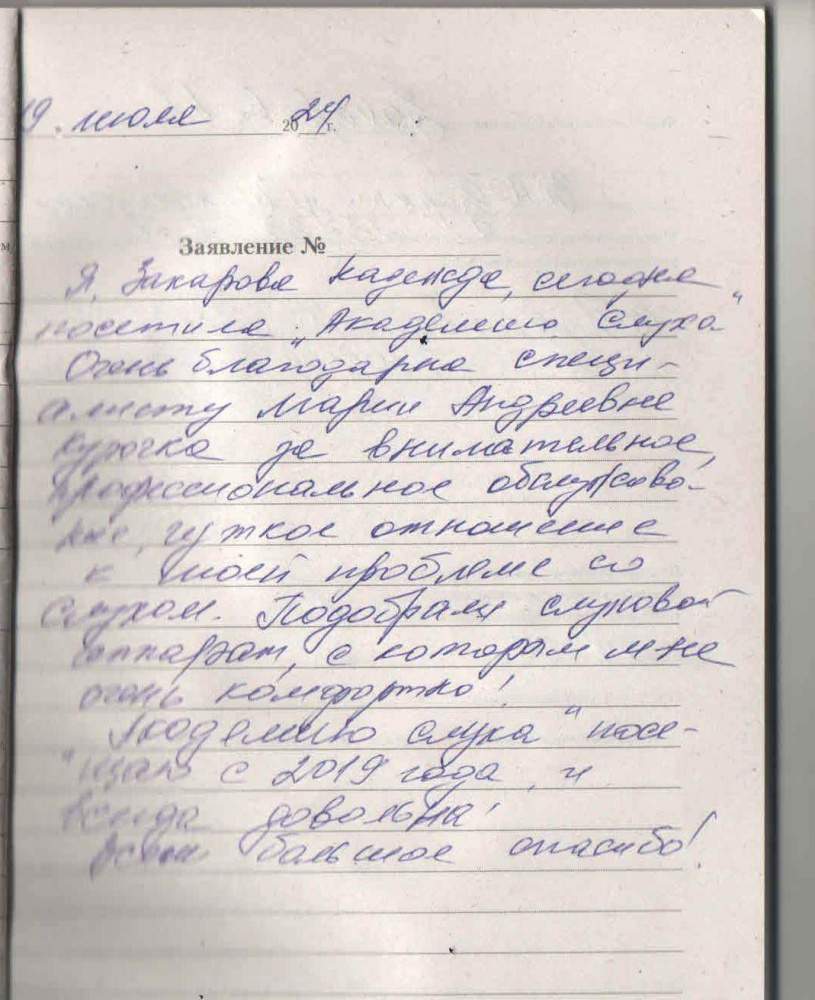 19 июля 2024 г.
Заявление №
Я, Захарова Надежда, сегодня
посетила „Академию слуха"
Очень благодарна специ-
алисту Марии Андреевне
Курочка за внимательное,
профессиональное обслужива-
ние, чуткое отношение
к моей проблеме со
слухом. Подобрали слуховой
аппарат, с которым мне
очень комфортно!
"Академию слуха" посе-
щаю с 2019 года, и
всегда довольна!
Всем большое спасибо!